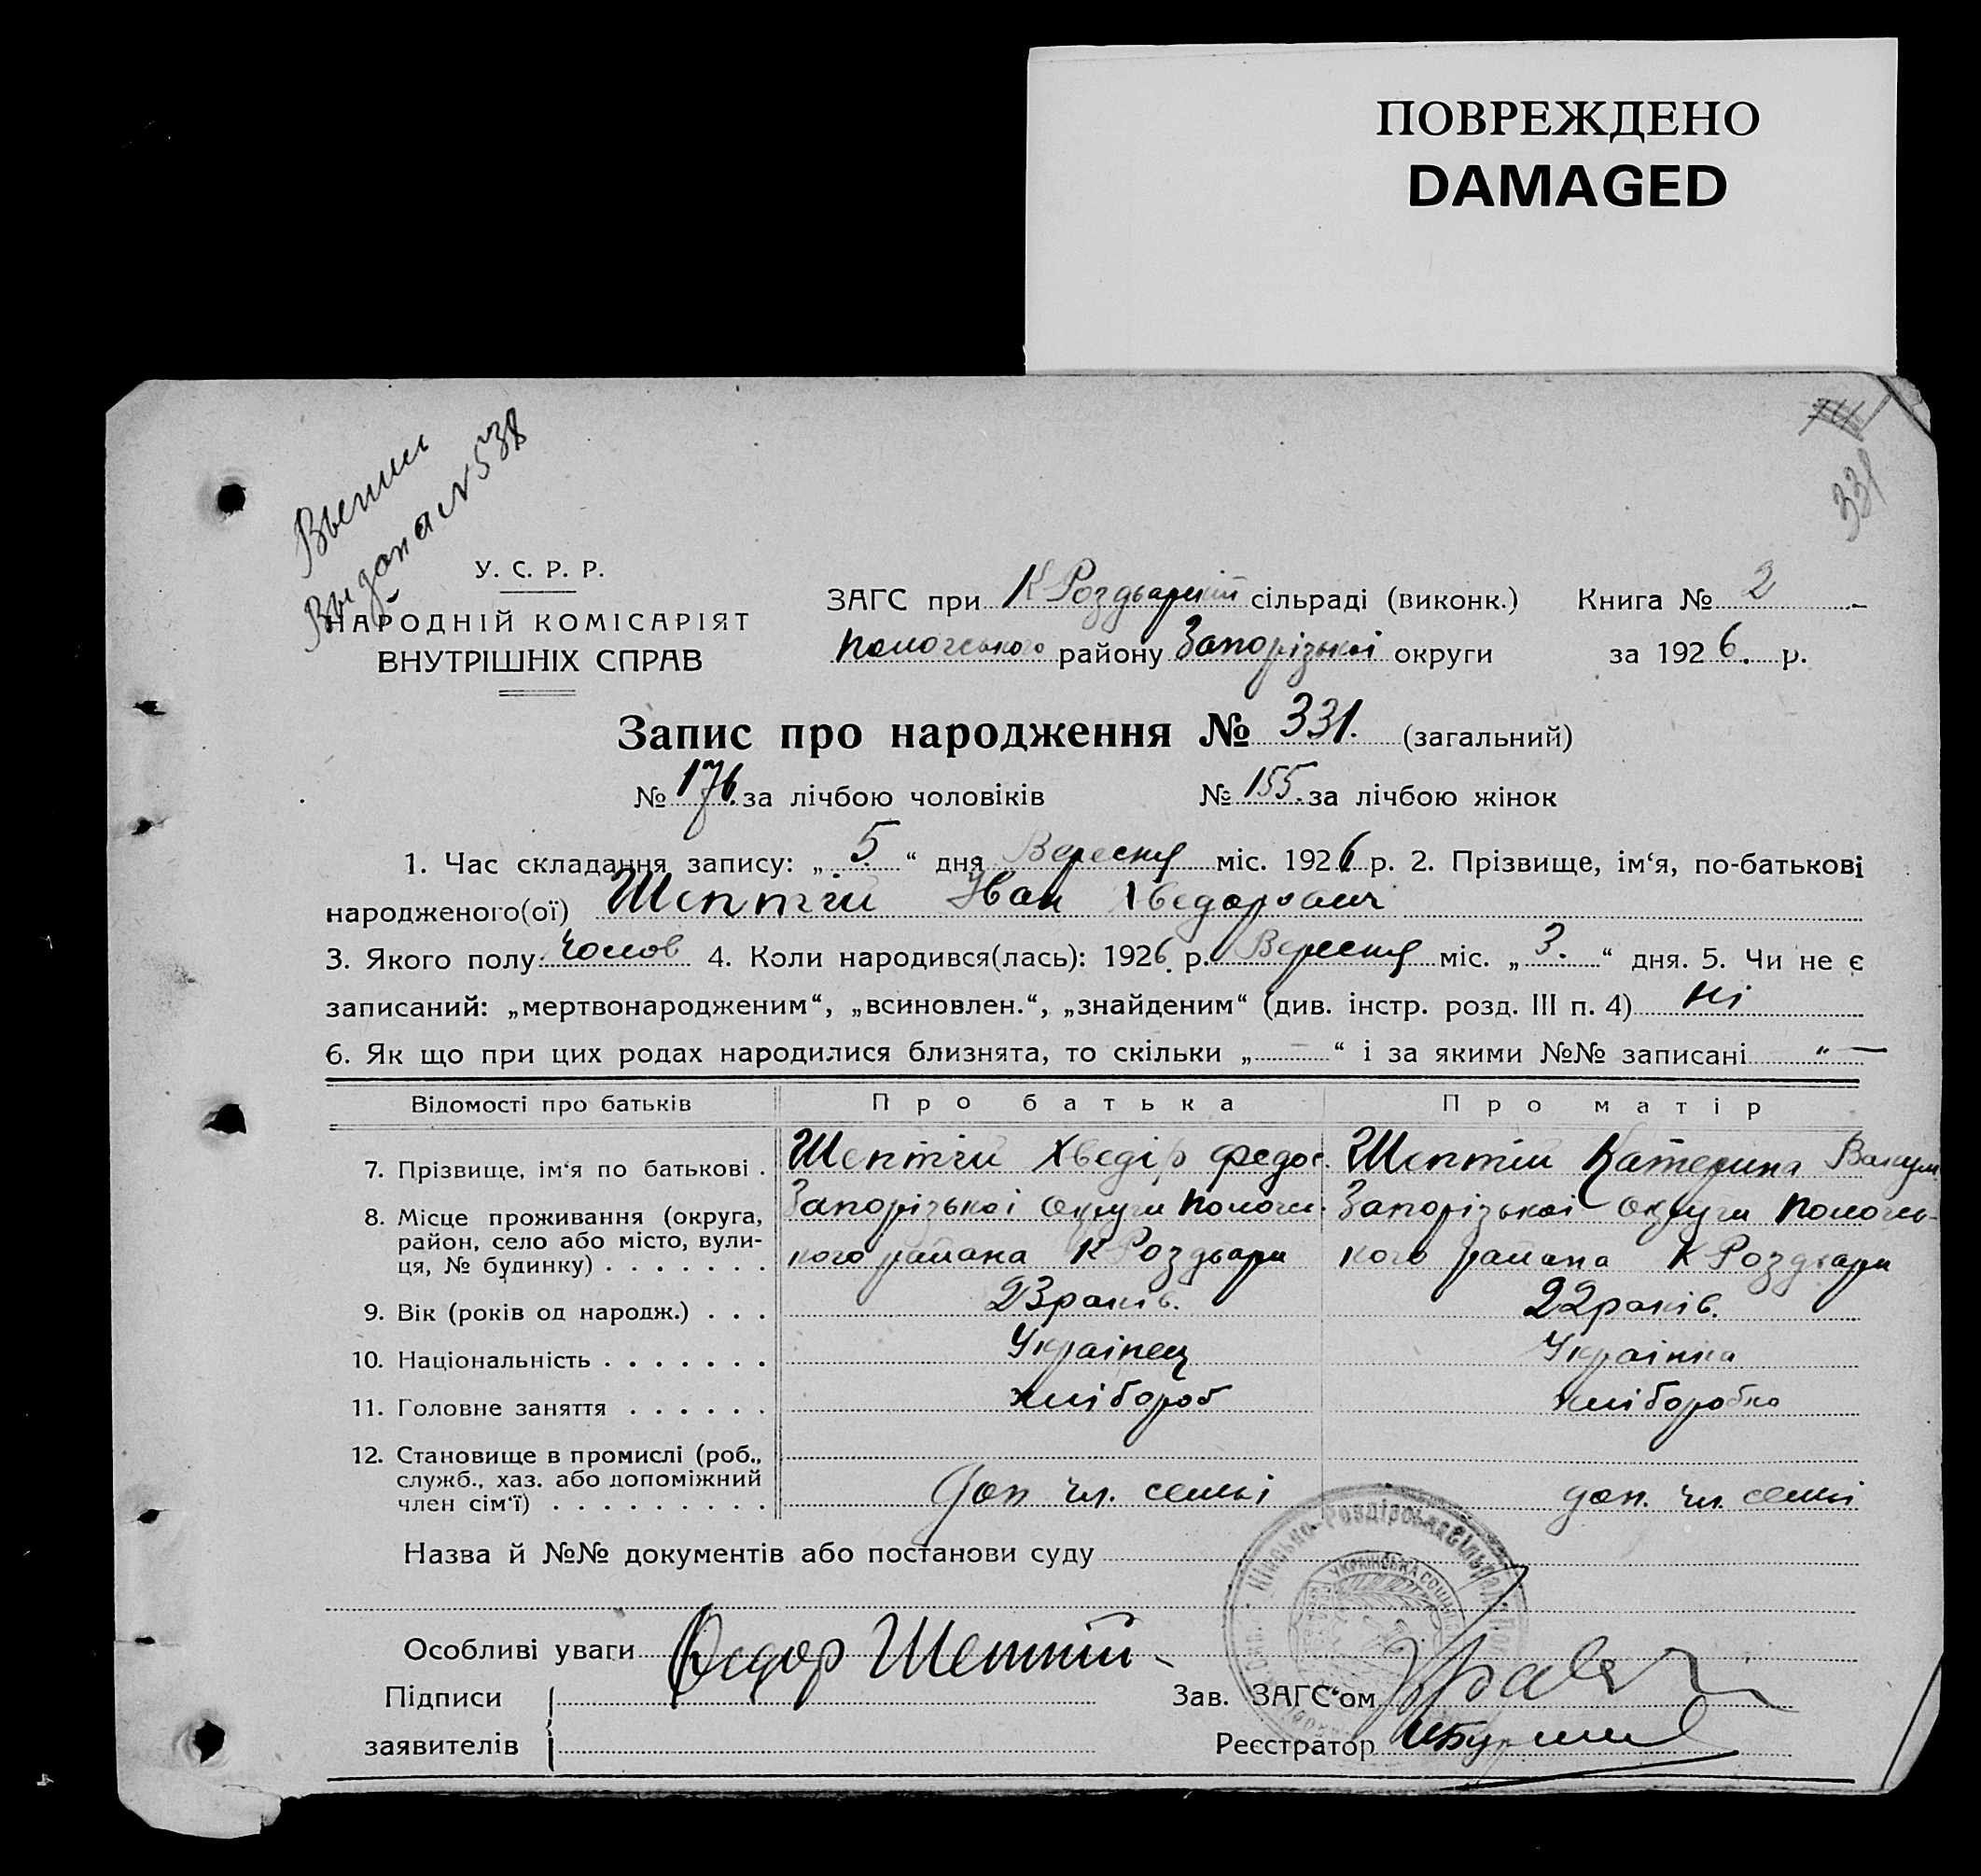 ПОВРЕЖДЕНО
DAMAGED
331
Выдана № 538
У. С. Р. Р.
НАРОДНІЙ КОМІСАРІЯТ
ВНУТРІШНІХ СПРАВ
ЗАГС при К Роздьарскій сільраді (виконк.) Книга № 2
Пологського району Запорізькоі округи за 1926. р.
Запис про народження № 331. (загальний)
№ 176. за лічбою чоловіків № 155. за лічбою жінок
1. Час складання запису: „ 5 “ дня Вересня міс. 1926 р. 2. Прізвище, ім‘я, по-батькові
народженого(ої) Шептій Іван Хведорович
3. Якого полу: чолов 4. Коли народився(лась): 1926. р. Вересня міс. „ 3. “ дня. 5. Чи не є
записаний: „мертвонародженим“, „всиновлен.“, „знайденим“ (див. інстр. розд. III п. 4) Ні
6. Як що при цих родах народилися близнята, то скільки „ — “ і за якими №№ записані „ —
Відомості про батьків Про батька Про матір
7. Прізвище, ім‘я по батькові . Шептій Хведір Федос. Шептій Катерина Вакум
8. Місце проживання (округа, Запорізькоі округи Пологсь- Запорізькоі округи Пологсь-
район, село або місто, вули-
ця, № будинку) . . . . . . . кого района К Роздьари кого района К Роздьари
9. Вік (років од народж.) . . . 23 років. 22 років.
10. Національність . . . . . . . Украінец Украінка
11. Головне заняття . . . . . . хлібороб хліборобка
12. Становище в промислі (роб.,
служб., хаз. або допоміжний
член сім‘ї) . . . . . . . . . доп чл. семьі доп. чл семьі
Назва й №№ документів або постанови суду
Особливі уваги Федор Шептій
Підписи
заявителів
Зав. ЗАГС‘ом
Реєстратор